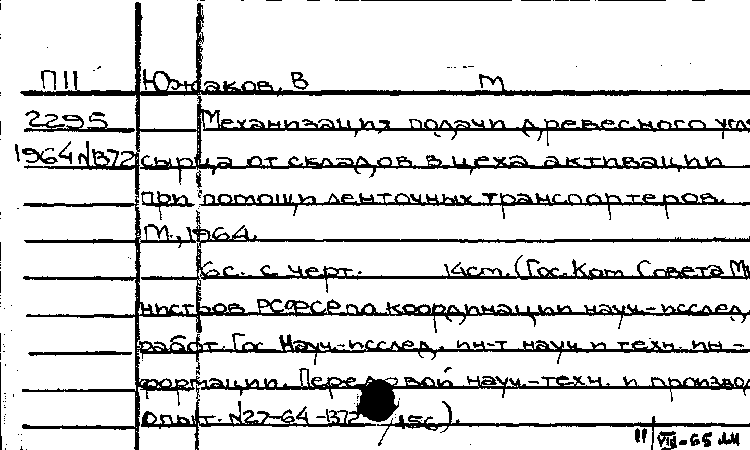 П11 Южаков, В М
2295 Механизация подачи древесного угля
1964/1372 сырца от складов в цеха активации
при помощи ленточных транспортеров.
М., 1964.
6с. с черт. 14см. (Гос. Ком Совета Ми
нистров РСФСР по координации науч-исслед.
работ. Гос Науч-исслед. ин-т науч и техн. ин-
формации. Передовой науч-техн. и производ
опыт. №27-64-1372/156).
11/VIII-65